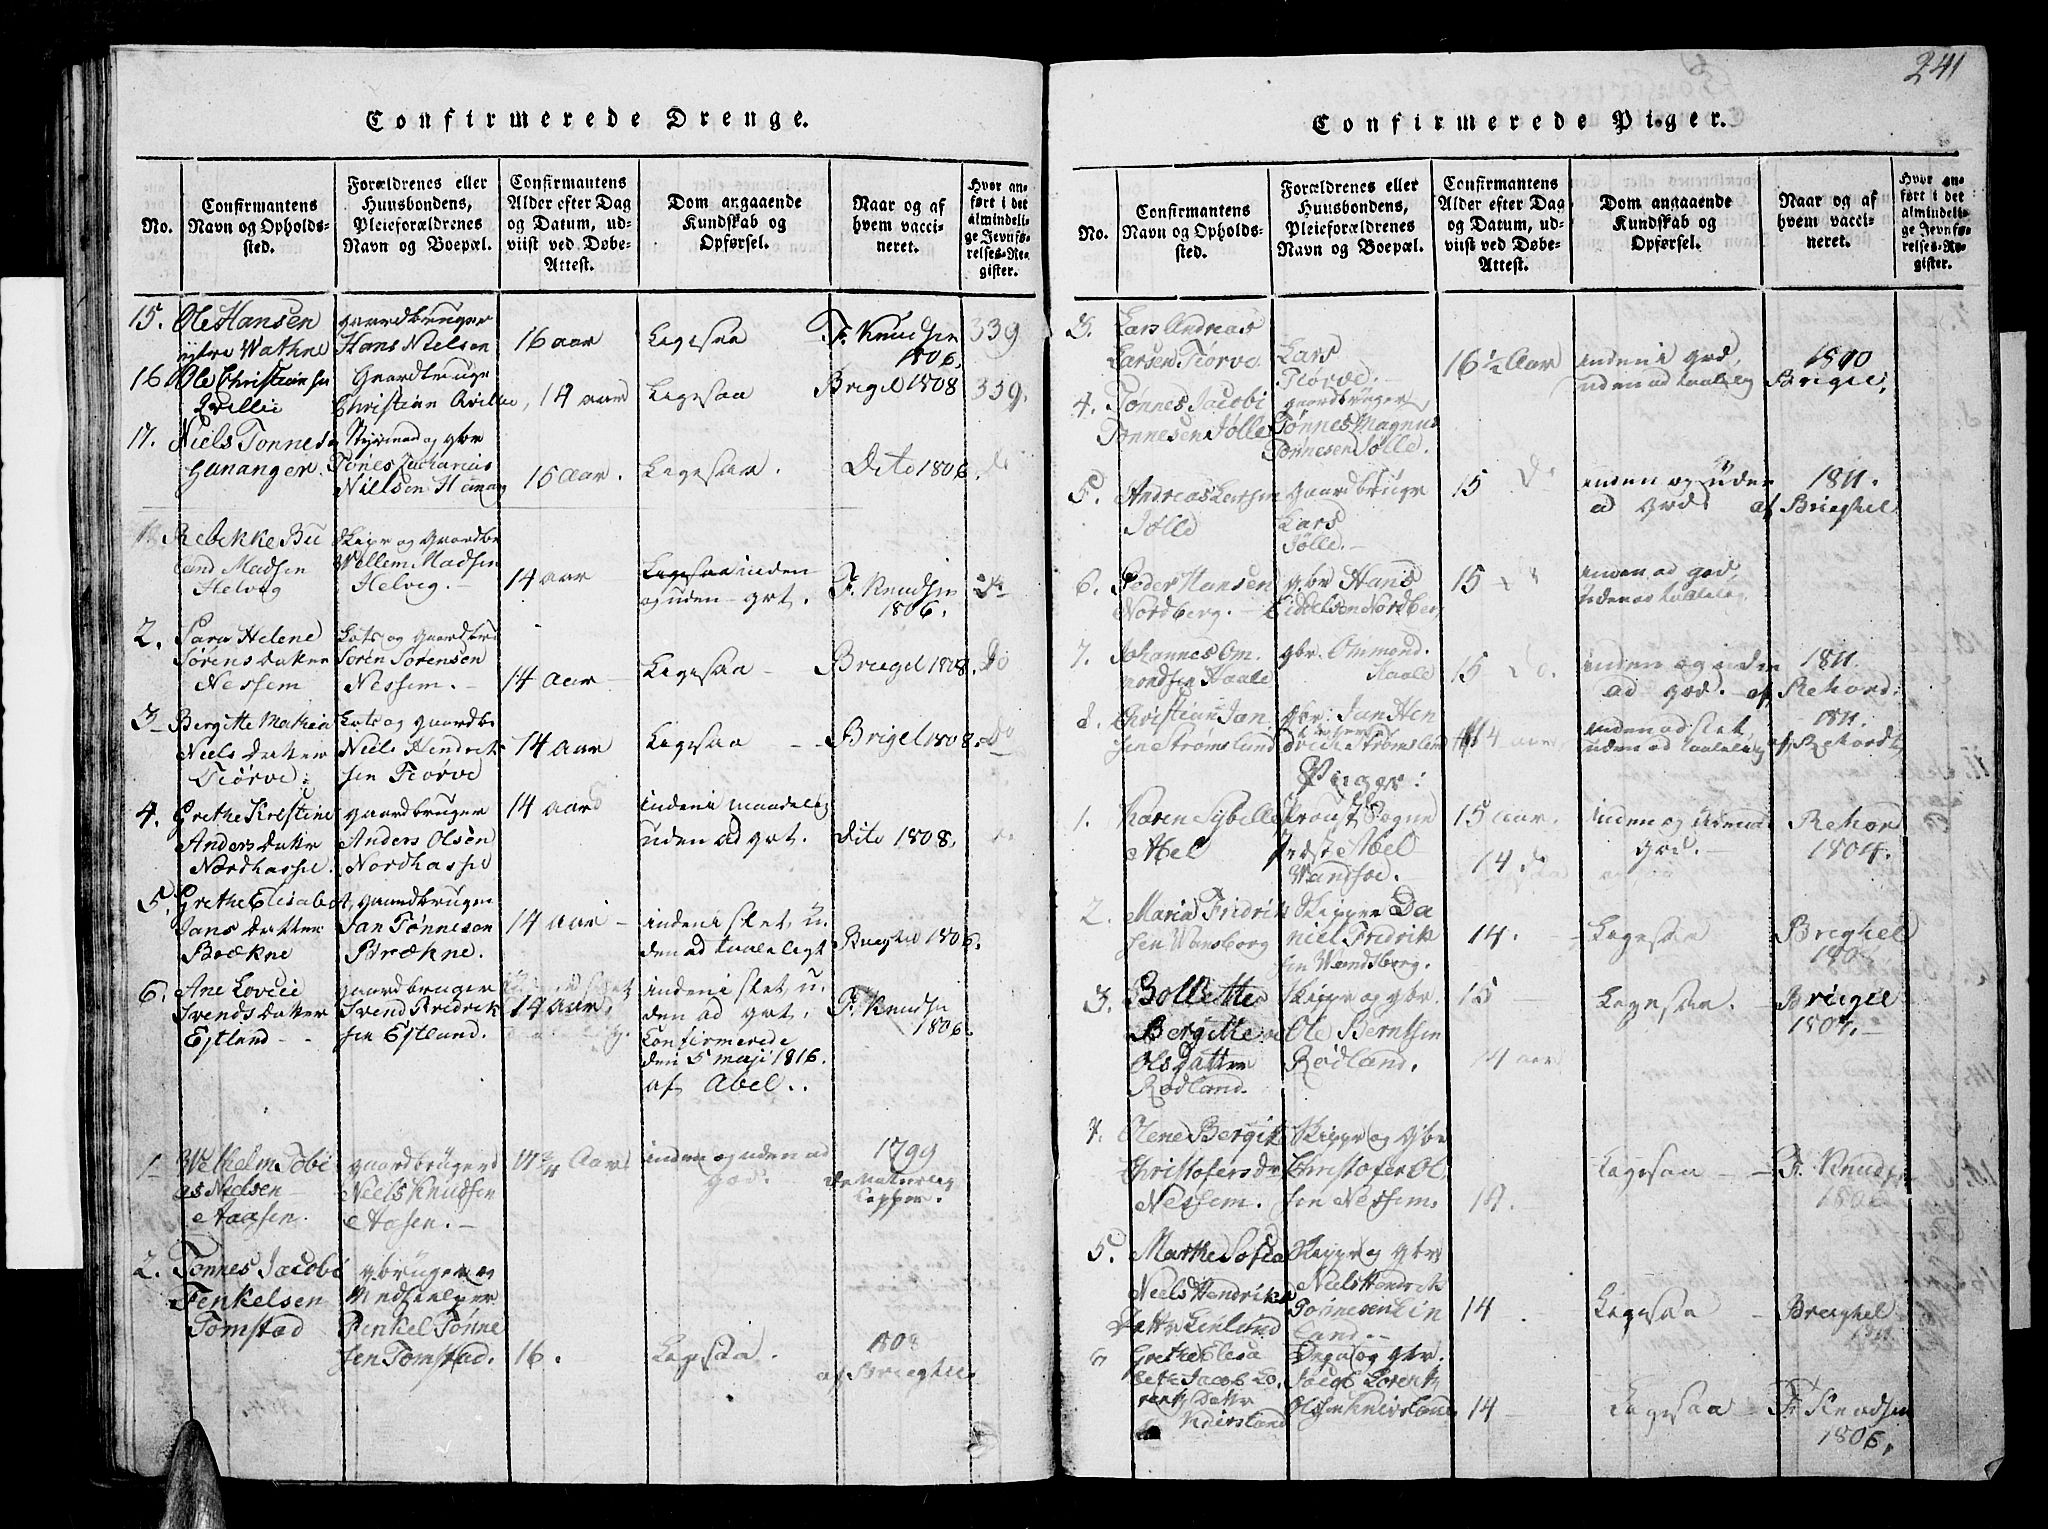 241
Confirmerede Drenge.
No.
Confirmantens
Navn og Opholds-
sted.
Forældrenes eller
Huusbondens,
Pleieforældrenes
Navn og Boepæl.
Confirmantens
Alder efter Dag
og Datum, ud-
viist ved Døbe-
Attest.
Dom angaaende
Kundskab og
Opførsel.
Naar og af
hvem vacci-
neret.
Hvor an-
ført i det
almindeli-
ge Jevnfø-
relses-Re-
gister.
15. Ole Hansen
ytre Wathne
gaardbruger
Hans Nielsen
16 aar
Ligesaa
F. Knudsen
1806.
339
16 Ole Christiansen
Qvillii
Gaardbruge
Christian Qville
14 aar
Ligesaa
Brigel 1808
339.
17. Niels Tonnes
Hananger.
Styrmad og gbr
Tønes Zacharias
Nillsen Hanang
15 Aar.
Ligesaa.
Dito 1806.
do
Rebekke
Madsen
Helvig
Skipr og Gaardbr
Willem Madsen
Helvig —
14 aar
Ligesaa inden
og uden grt.
F. Knudsen
1806.
Do
2. Sara Helene
Sørens Datter
Nessem
Lots og Gaardbr
Søren Sørensen
Nessem. —
14 Aar —
Ligesaa —
Briegel 1808.
Do
3 Bergitte Mathia
Niels Datter
Tiørve
Lots og gaardbr
Niels Hendrik
sen Tiørve
14 Aar
Ligesaa —
Brigel 1808.
Do
4. Grethe Kristine
Anders Datter
Nordhassel.
gaardbruger
Anders Olsen
Nordhassel
14 aar
indeni maadelig
uden ad grt.
Dito 1808.
5. Grethe Elisabet
Jans Datter
Brækne
gaardbruger
Jan Tønnesen
Brækne.
14 aar —
indeni slet, u-
den ad taalelegt
Brighel 1806.
6. Ane Lovise
Svends Datter
Estland — -
gaardbruger
Svend Fredrik
sen Estland.
14 Aar
indeni slet u-
den ad grt.
Confirmerede
den 5 maji 1816.
af Abel..
F. Knudsen
1806.
1 Wilhelm Tobi
as Nielsen
Aaasen.
gaardbruger
Niels Knudsen
Aasen. —
Aar
inden og uden ad
god.
1799
de Naturlig
Copper.
2. Tønnes Jacobi
Tenkelsen
Tomstad
gbruger og
Medhielper
Tenkel Tønne
sen Tomstad.
16.
Ligesaa.
1808
af Brieghel.
Confirmerede Piger.
No.
Confirmantens
Navn og Opholds-
sted.
Forældrenes eller
Huusbondens,
Pleieforældrenes
Navn og Boepæl.
Confirmantens
Alder efter Dag
og Datum, ud-
viist ved Døbe-
Attest.
Dom angaaende
Kundskab og
Opførsel.
Naar og af
hvem vacci-
neret.
Hvor an-
ført i det
almindeli-
ge Jevnfø-
relses-Re-
gister.
3. Lars Andreas
Larsen Tiørve
Lars
Tiørve.
16 1/2 Aar
indeni god,
uden ad taalelig
1810
Brigel.
4. Tonnes Jacobi
Tønnesen Jølle
gaardbruger
Tønnes Magnus
Tønnesen Jølle.
5. Andreas Larsen
Jølle
gaardbruge
Lars
Jølle. —
15 Do
inden og uden
ad god
1811.
af Brieghel
6. Peder Hansen
Nordberg. —
gbr Hans
Nordberg
15
inden ad god,
uden ad taalelig.
7. Johannes Om
mondsen Haale
gbr. Ommond
Haale
15 Do.
inden og uden
ad god.
1811.
af Rehord
8. Christian Jan
sen Strømsland
gbr. Jan Hen
drik Strømsland
14 aar
inden ad slet,
uden ad taalelig
1811.
af Rehordt
Pinger:
1. Karen Sybille
Abel
Prowst Sogne
Præst Abel
Wandsøe.
15 aar.
14 do
inden og uden
god.
Rehor
1804.
2. Maria Fridrik
sen Wansborg
Skipper Da
niel Fridrik
sen Wandsberg.
14.
Ligesaa
Brighel
3. Bollethe
Bergitte
Olsdatter
Rødland.
Skippr og gbr.
Ole Berntsen
Rødland.
15
14 aar
Ligesaa.
Briegel
1807.
4. Olene Bergit
Christofersdr
Nessem.
Skippr og gbr
Christofer Ol
sen Nessem.
14.
Ligesaa —
F. Knudsen
1806
5. Marthe Sofia
Niels Hendriks
Datter Linlund
Skippr og gbr
Niels Hendrik
Tønnesen Lin
land —
14
Ligesaa
Breighel
6 Grethe Elisa
bete Jacob Lo
rentz Datter
Knivsland
Degn og gbr.
Jacob Lorentz
Olsen Knivsland
14
Ligesaa —
F. Knudsen
1806.